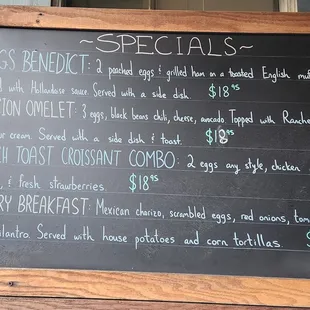 ~SPECIALS~
GS BENEDICT: 2 poached eggs & grilled ham on a toasted English muf
d with Hollandaise sauce. Served with a side dish. $18.95
ION OMELET: 3 eggs, black beans chili, cheese, avocado. Topped with Ranche
ur cream. Served with a side dish & toast. $18.95
CH TOAST CROISSANT COMBO: 2 eggs any style, chicken
, & fresh strawberries. $18.95
RY BREAKFAST: Mexican chorizo, scrambled eggs, red onions, tom
ilantro. Served with house potatoes and corn tortillas. $